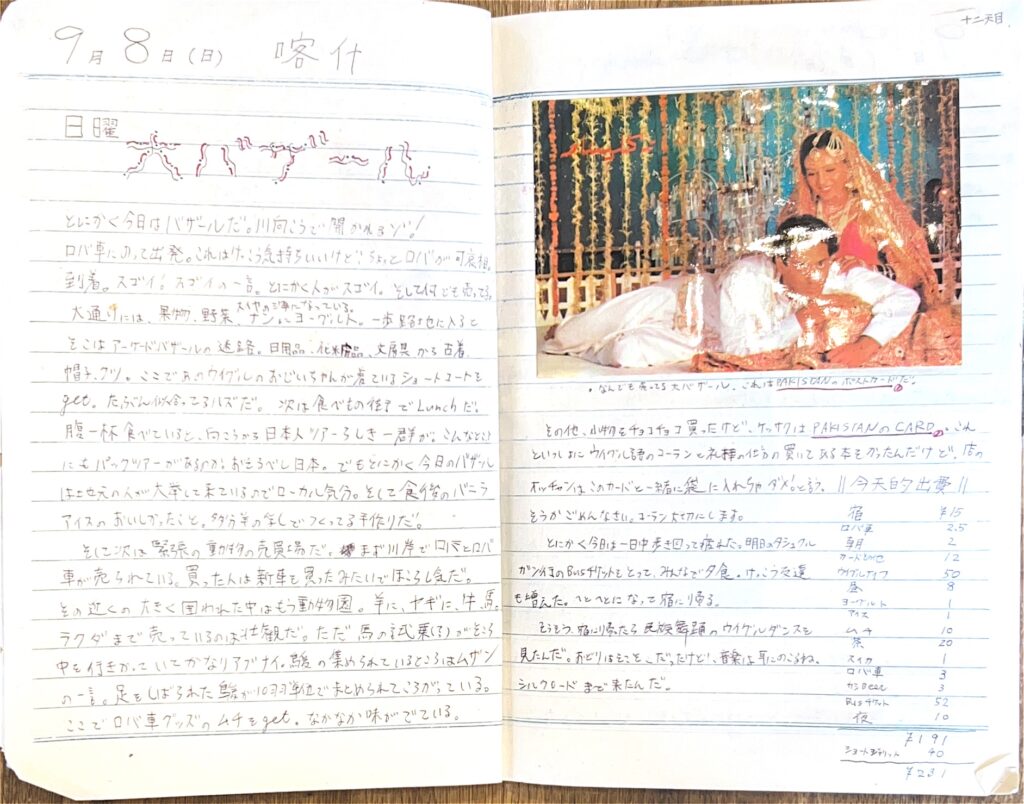 9月8日(日) 喀什
日曜
とにかく今日はバザールだ。川向こうで開かれるゾ!
ロバ車にのって出発。これはけっこう気持ちいいけど、ちょっとロバが可哀相。
到着。スゴイ!スゴイの一言。とにかく人がスゴイ。そして何でも売ってる。
大通りには、果物、野菜、ナン、ヨーグルト。一歩路地に入ると
そこはアーケードバザールの迷路。日用品、化粧品、文房具から古着
帽子、クツ。ここであのウイグルのおじいちゃんが着ているショートコートを
get。たぶん似合ってるハズだ。次は食べもの街でLunchだ。
腹一杯食べていると、向こうから日本人ツアーらしき一群が。こんなとこ
にもパックツアーがあるのか。おそるべし日本。でもとにかく今日のバザール
は地元の人が大挙して来ているのでローカル気分。そして食後のバニラ
アイスのおいしかったこと。多分羊の乳でつくってる手作りだ。
そして次は緊張の動物の売買場だ。まず川岸でロバとロバ
車が売られている。買った人は新車を買ったみたいでほこらし気だ。
その近くの大きく囲われた中はもう動物園。羊に、ヤギに、牛、馬。
ラクダまで売っているのは壮観だ。ただ馬の試乗(?)がところ
中を行きかっていてかなりアブナイ。驢の集められているところはムザン
の一言。足をしばられた驢が10羽単位でまとめられてころがっている。
ここでロバ車グッズのムチをget。なかなか味がでている。
十二天目
・なんでも売ってる大バザール。これはPAKISTANのポストカードだ。
その他、小物をチョコチョコ買ったけど、ケッサクはPAKISTANのCARD。これ
といっしょにウイグル語のコーランと礼拝の仕方の書いてある本をかったんだけど、店の
オッチャンはこのカードと一緒に袋に入れちゃダメ!と言う。
そうかごめんなさい。コーラン大切にします。
とにかく今日は一日中歩き回って疲れた。明日のタシュクル
ガン行のBusチケットをとって、みんなで夕食。けっこう友達
も増えた。へとへとになって宿に帰る。
そうそう、宿に帰ったら民族舞踊のウイグルダンスを
見たんだ。おどりはそこそこだったけど、音楽は耳にのこるね。
シルクロードまで来たんだ。
||今天的出費||
宿 ¥15
ロバ車 2.5
朝 2
カードとか他 12
ウイグルナイフ 50
昼 8
ヨーグルト 1
アイス 1
ムチ 10
茶 20
スイカ 1
ロバ車 3
カシBeer 3
Busチケット 52
夜 10
¥191
40
¥231